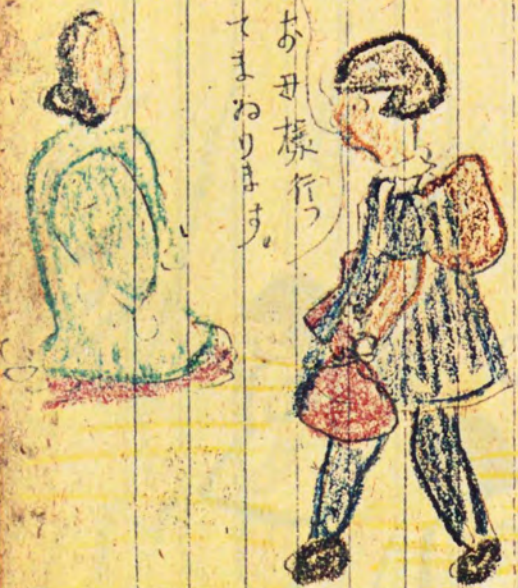 お母様行つ
てまゐります。